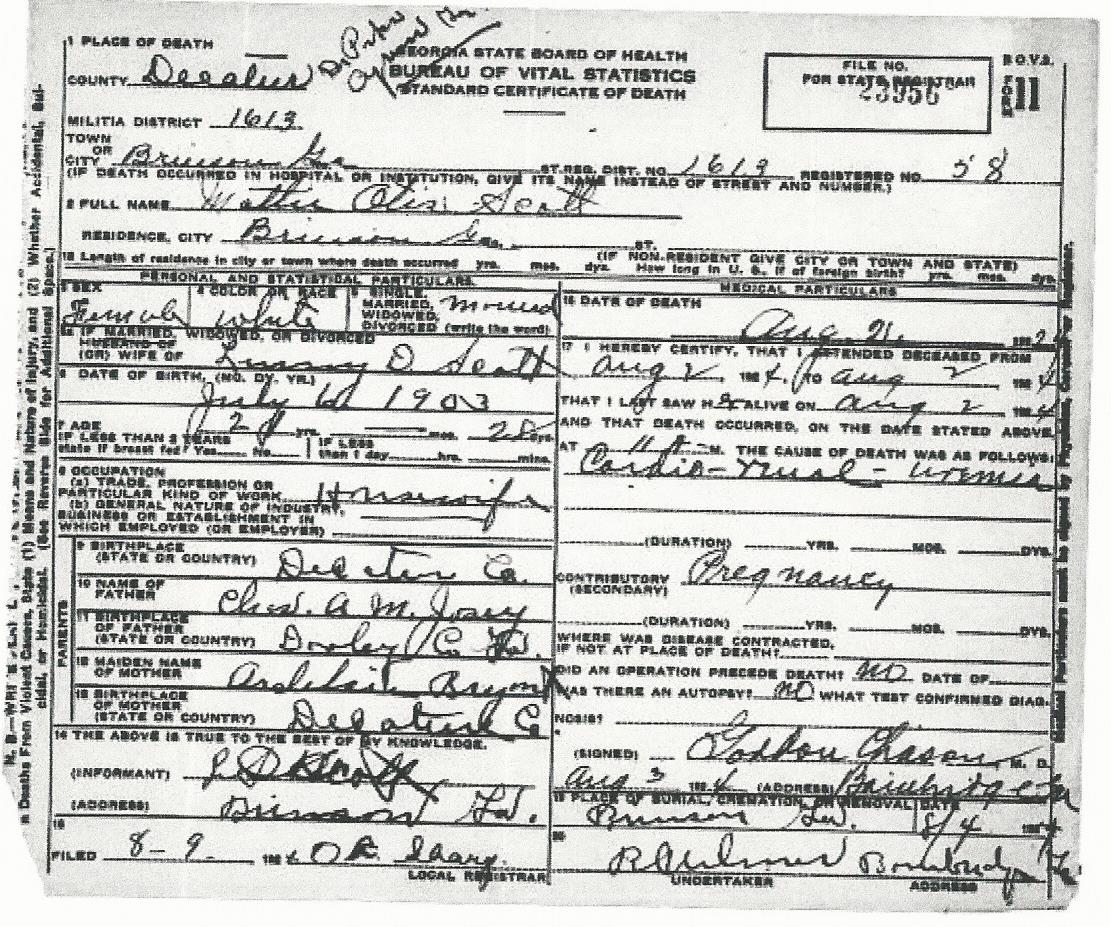 1 PLACE OF DEATH
COUNTY Decatur
GEORGIA STATE BOARD OF HEALTH
BUREAU OF VITAL STATISTICS
STANDARD CERTIFICATE OF DEATH
FILE NO.
FOR STATE REGISTRAR
B.O.V.S.
FORM 11
MILITIA DISTRICT 1613
TOWN
OR
CITY Brinson Ga. ST. REG. DIST. NO. 1613 REGISTERED NO. 58
(IF DEATH OCCURRED IN HOSPITAL OR INSTITUTION, GIVE ITS NAME INSTEAD OF STREET AND NUMBER.)
2 FULL NAME Mattie Otis Scott
RESIDENCE, CITY Brinson Ga. ST.
(IF NON-RESIDENT GIVE CITY OR TOWN AND STATE)
Length of residence in city or town where death occurred yrs. mos. dys. How long in U. S., if of foreign birth? yrs. mos. dys.
PERSONAL AND STATISTICAL PARTICULARS
3 SEX Female
4 COLOR OR RACE White
5 SINGLE, MARRIED, WIDOWED, DIVORCED (write the word) Married
IF MARRIED, WIDOWED, OR DIVORCED
HUSBAND OF
(OR) WIFE OF D Scott
6 DATE OF BIRTH, (MO. DY. YR.)
July 1903
7 AGE yrs. mos. 28 dys.
IF LESS THAN 2 YEARS
state if breast fed? Yes No
IF LESS
than 1 day hrs. mins.
8 OCCUPATION
(a) TRADE, PROFESSION OR
PARTICULAR KIND OF WORK Housewife
(b) GENERAL NATURE OF INDUSTRY,
BUSINESS OR ESTABLISHMENT IN
WHICH EMPLOYED (OR EMPLOYER)
PARENTS
9 BIRTHPLACE
(STATE OR COUNTRY) Decatur Co.
10 NAME OF
FATHER Chas. A. M. Josey
11 BIRTHPLACE
OF FATHER
(STATE OR COUNTRY) Dooley Co Ga.
12 MAIDEN NAME
OF MOTHER
13 BIRTHPLACE
OF MOTHER
(STATE OR COUNTRY) Decatur Co
14 THE ABOVE IS TRUE TO THE BEST OF MY KNOWLEDGE.
(INFORMANT)
(ADDRESS) Brinson Ga.
15
FILED 8-9 1924
LOCAL REGISTRAR
MEDICAL PARTICULARS
16 DATE OF DEATH
Aug 192
17 I HEREBY CERTIFY, THAT I ATTENDED DECEASED FROM
Aug 2 1924, TO Aug 2 1924
THAT I LAST SAW HER ALIVE ON Aug 2 1924
AND THAT DEATH OCCURRED, ON THE DATE STATED ABOVE
AT 11 M. THE CAUSE OF DEATH WAS AS FOLLOWS:
Cardio-renal-uremia
(DURATION) YRS. MOS. DYS.
CONTRIBUTORY Pregnancy
(SECONDARY)
(DURATION) YRS. MOS. DYS.
WHERE WAS DISEASE CONTRACTED,
IF NOT AT PLACE OF DEATH?
DID AN OPERATION PRECEDE DEATH? NO DATE OF
WAS THERE AN AUTOPSY? NO WHAT TEST CONFIRMED DIAG-
NOSIS?
(SIGNED) Gordon Chason, M. D.
Aug 3 1924 (ADDRESS) Bainbridge Ga
19 PLACE OF BURIAL, CREMATION, OR REMOVAL DATE
Brinson Ga. 8/4 1924
20
UNDERTAKER ADDRESS